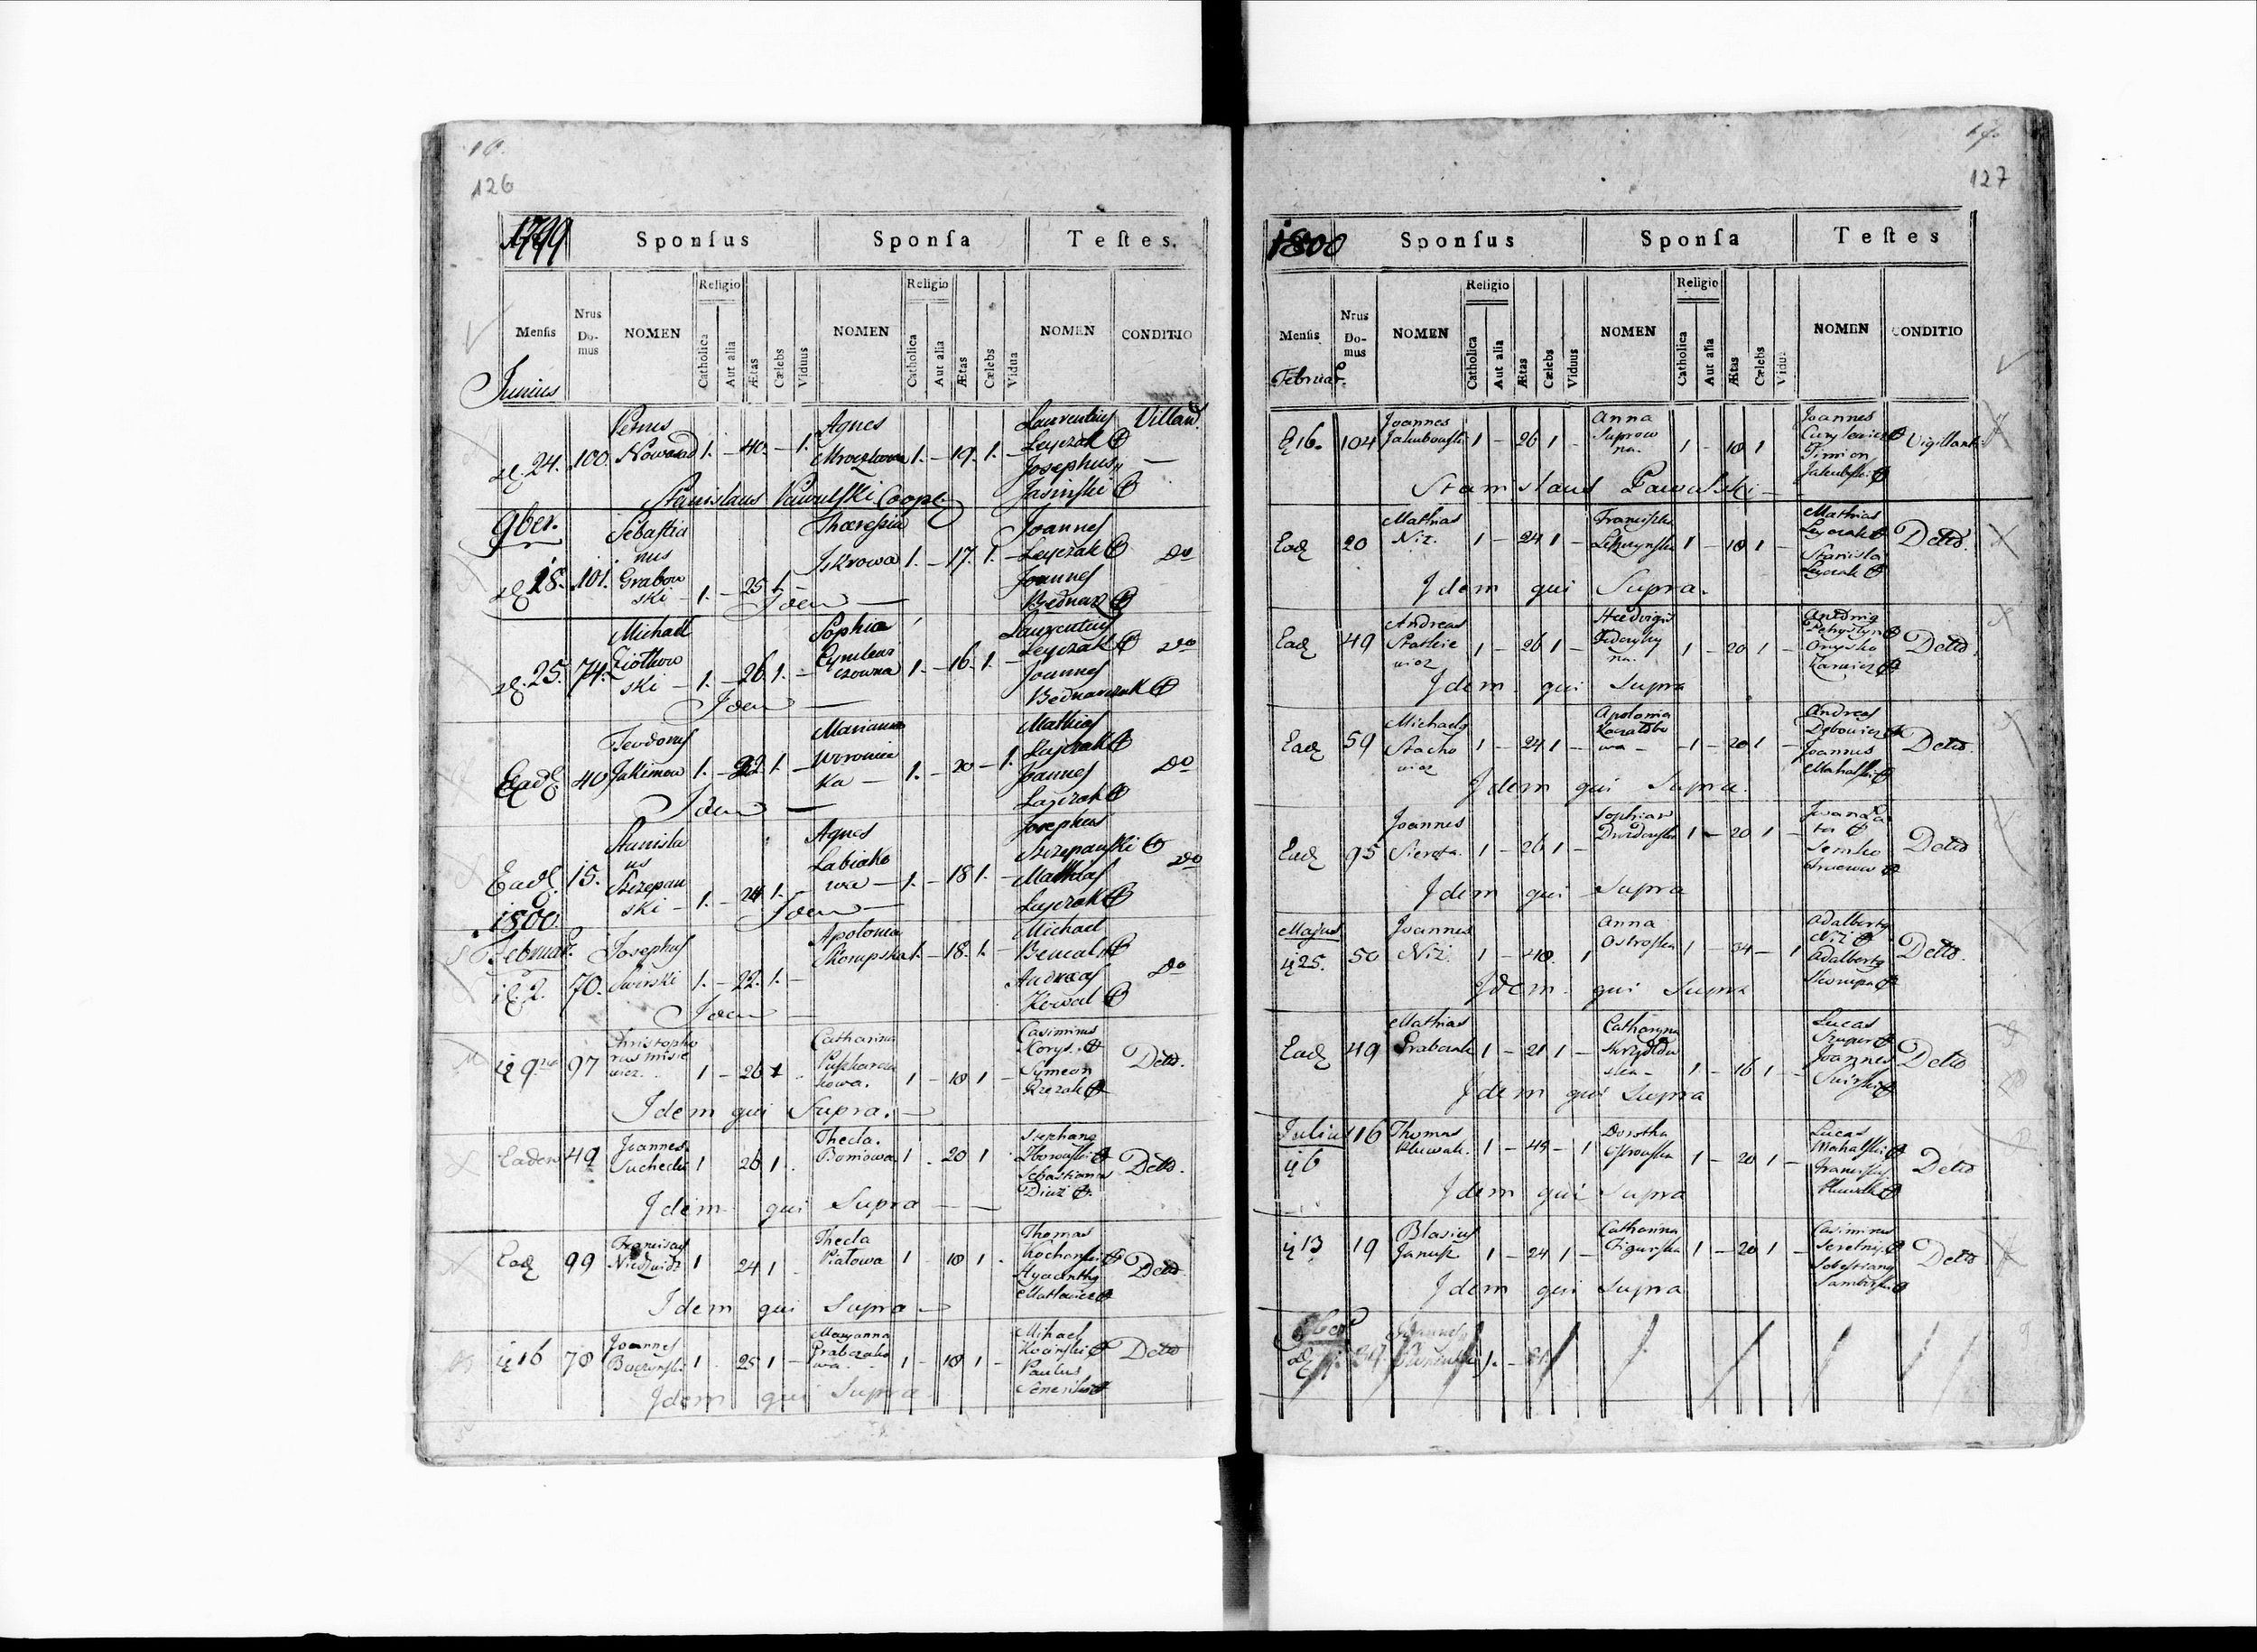 16.
126
1799 Sponſus Sponſa Teſtes.
Menſis Nrus Domus NOMEN Religio Catholica Aut alia Ætas Cælebs Viduus NOMEN Religio Catholica Aut alia Ætas Cælebs Vidua NOMEN CONDITIO
Junius
24. 100. Petrus Nowosad 1. – 40. – 1. Agnes 1. – 19. 1. – Laurentius Leyczak Josephus Jasinski Villan.
Stanislaus Pawulski Coop
9ber.
18. 101. Sebastianus Grabowski 1. – 25 1. – Thæresia Iskrowa 1. – 17. 1. – Joannes Leyczak Joannes Bednarz do
Idem
25. 74. Michael Ziołkowski – 1. – 26. 1. – Sophia 1. – 16. 1. – Laurentius Leyczak Joannes Bednarczuk do
Idem
Ead. 40 Teodorus Jakimow 1. – 22 1. – Marianna Woronicka – 1. – 20 – 1. Mathias Leyczak Joannes Layczak do
Idem
Ead. 15. Stanislaus Szczepanski – 1. – 24 1. – Agnes Labiakowa – 1. – 18 1. – Josephus Szczepanski Mathias Layczak do
Idem
1800.
Februar.
2. 70. Josephus Swirski 1. – 22. 1. – Apolonia Skompska 1. – 18. 1. – Michael Bencal Andreas Kowal do
Idem
9na 97 Christophorus Misiewicz. 1 – 26 1 Catharina 1 – 18 1 – Casimirus Korys. Symeon Rzezak Detto.
Idem qui Supra. –
Eadem 49 Joannes Suchecki 1 26 1. Thecla. Boniowa 1 – 20 1 Stephang Sebastianus Diuzi Detto.
Idem qui Supra – –
Ead 99 Franciscus Niedzwidz 1 24 1 – Thecla Piatowa 1 – 18 1 – Thomas Kochanski Hyacinthg Matławicz Detto
Idem qui Supra –
16 78 Joannes Buczynski 1 25 1 – Maryanna Grabczakowa – 1 – 18 1 – Mihael Kocinski Paulus Detto
Idem qui Supra
17.
127
1800 Sponſus Sponſa Teſtes
Menſis Nrus Domus NOMEN Religio Catholica Aut alia Ætas Cælebs Viduus NOMEN Religio Catholica Aut alia Ætas Cælebs Vidua NOMEN CONDITIO
Februar.
16. 104 Joannes Jakubowski 1 – 26 1 – Anna Suprowna. 1 – 18 1 Joannes Curylewicz Timion Jakubski
Stanislaus Pawulski –
Ead 20 Mathias Niz. 1 – 24 1 – Francisca 1 – 18 1 – Mathias Leyczak Stanisla Leyczak Detto.
Idem qui Supra.
Ead 49 Andreas Stachiewicz 1 – 26 1 – Hedvigis Fedoryszyna. 1 – 20 1 – Onyszko Detto.
Idem qui Supra
Ead 59 Michaelg Stachowicz 1 – 24 1 – Apolonia – 1 – 20 1 – Andreas Debowicz Joannes Mahalski Detto.
Idem qui Supra.
Ead 95 Joannes Sierota. 1 – 26 1 – Sophia Drozdowska 1 – 20 1 – Semko Detto
Idem qui Supra
Majus
25. 50 Joannes Niz. 1 – 40. 1 Anna Ostrowska 1 – 34 – 1 Adalbertg Niz Adalbertg Skompa Detto.
Idem qui Supra
Ead 49 Mathias Grabczak 1 – 21 1 – Catharyna 1 – 16 1 – Lucas Joannes Swirski Detto
Idem qui Supra
Julius
6 116 Thomas Hluwak. 1 – 45 – 1 Dorotha Ostrowska 1 – 20 1 – Lucas Mahalski Franciscus Hluwak Detto
Idem qui Supra
13 19 Blasius Janusz 1 – 24 1 – Catharina Figurska 1 – 20 1 – Casimirus Seretny. Sebastiang Samborski Detto
Idem qui Supra
Joannes 1. – 21